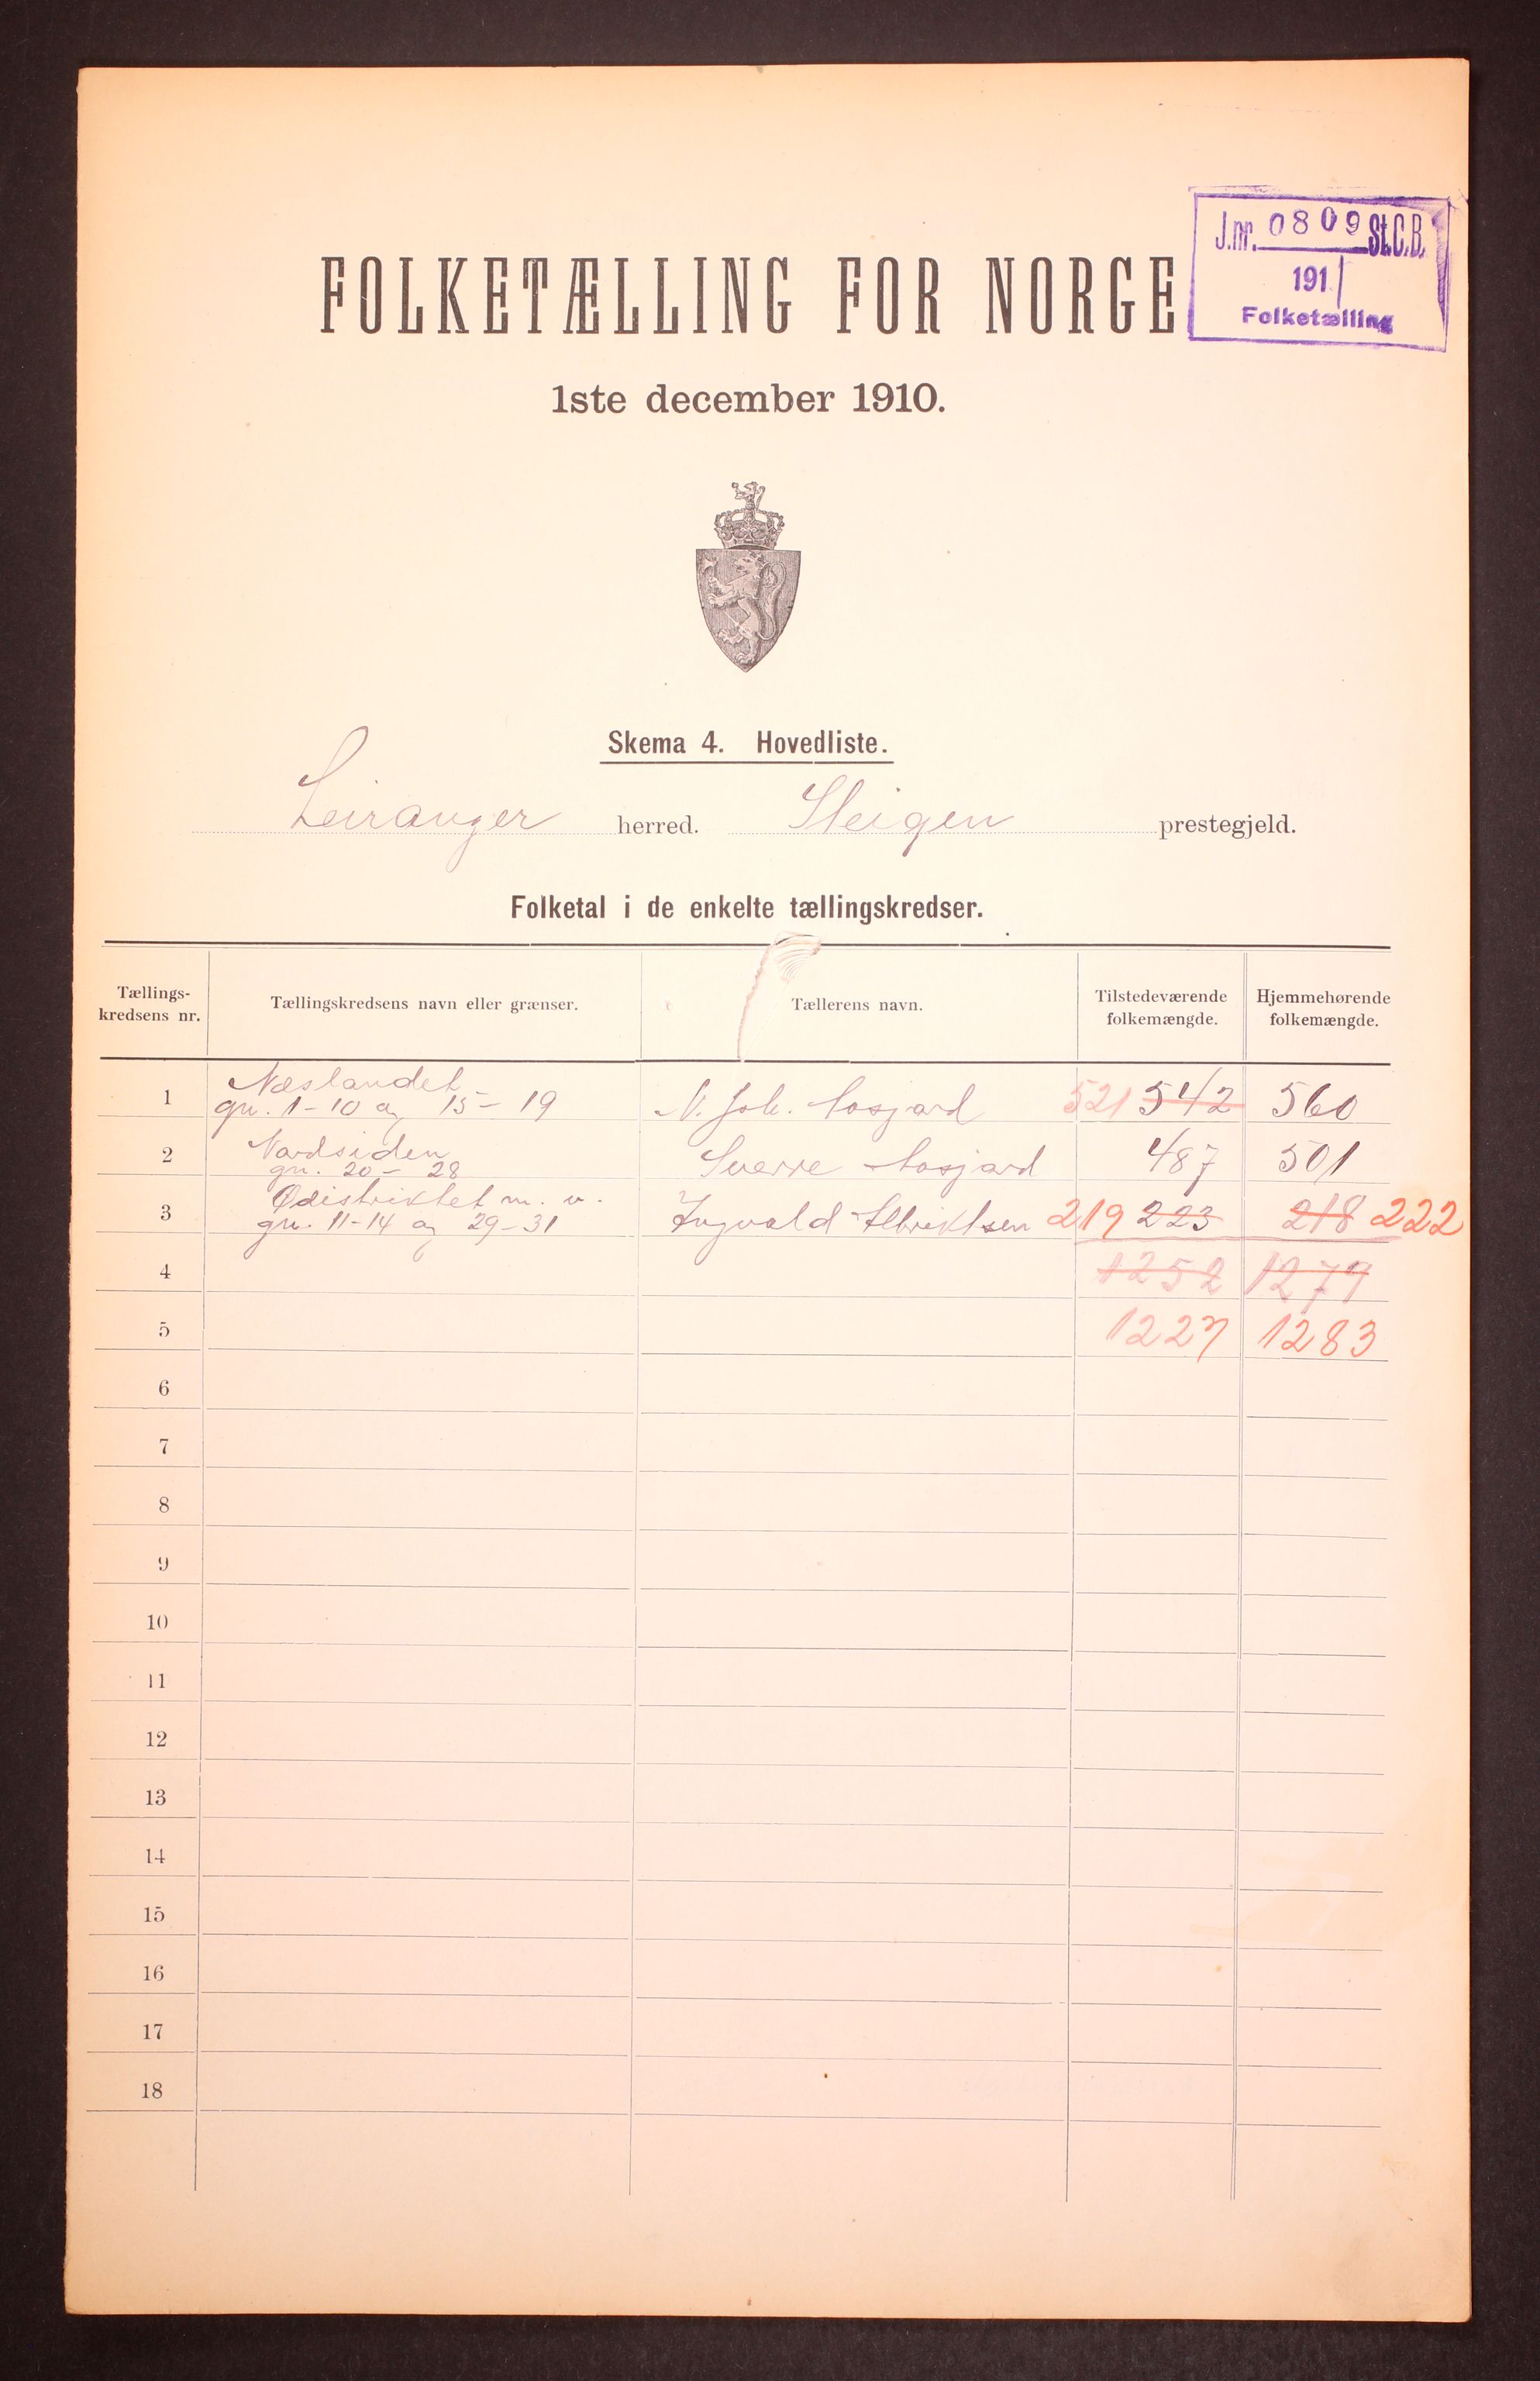 J.nr. 0809 St.C.B.
191 /
Folketælling
FOLKETÆLLING FOR NORGE
1ste december 1910.
Skema 4. Hovedliste.
Leiranger herred. Steigen prestegjeld.
Folketal i de enkelte tællingskredser.
Tællings-
kredsens nr.
Tællingskredsens navn eller grænser.
Tællerens navn.
Tilstedeværende
folkemængde.
Hjemmehørende
folkemængde.
1 Næslandet
gn. 1-10 og 15-19 N. Joh. Aasjord 521 542 560
2 Nordsiden
gn. 20-28 Sverre Aasjord 487 501
3 Ødistriktet m. v.
gn. 11-14 og 29-31 Ingvald Albriktsen 219 223 218 222
4 1252 1279
5 1227 1283
6
7
8
9
10
11
12
13
14
15
16
17
18